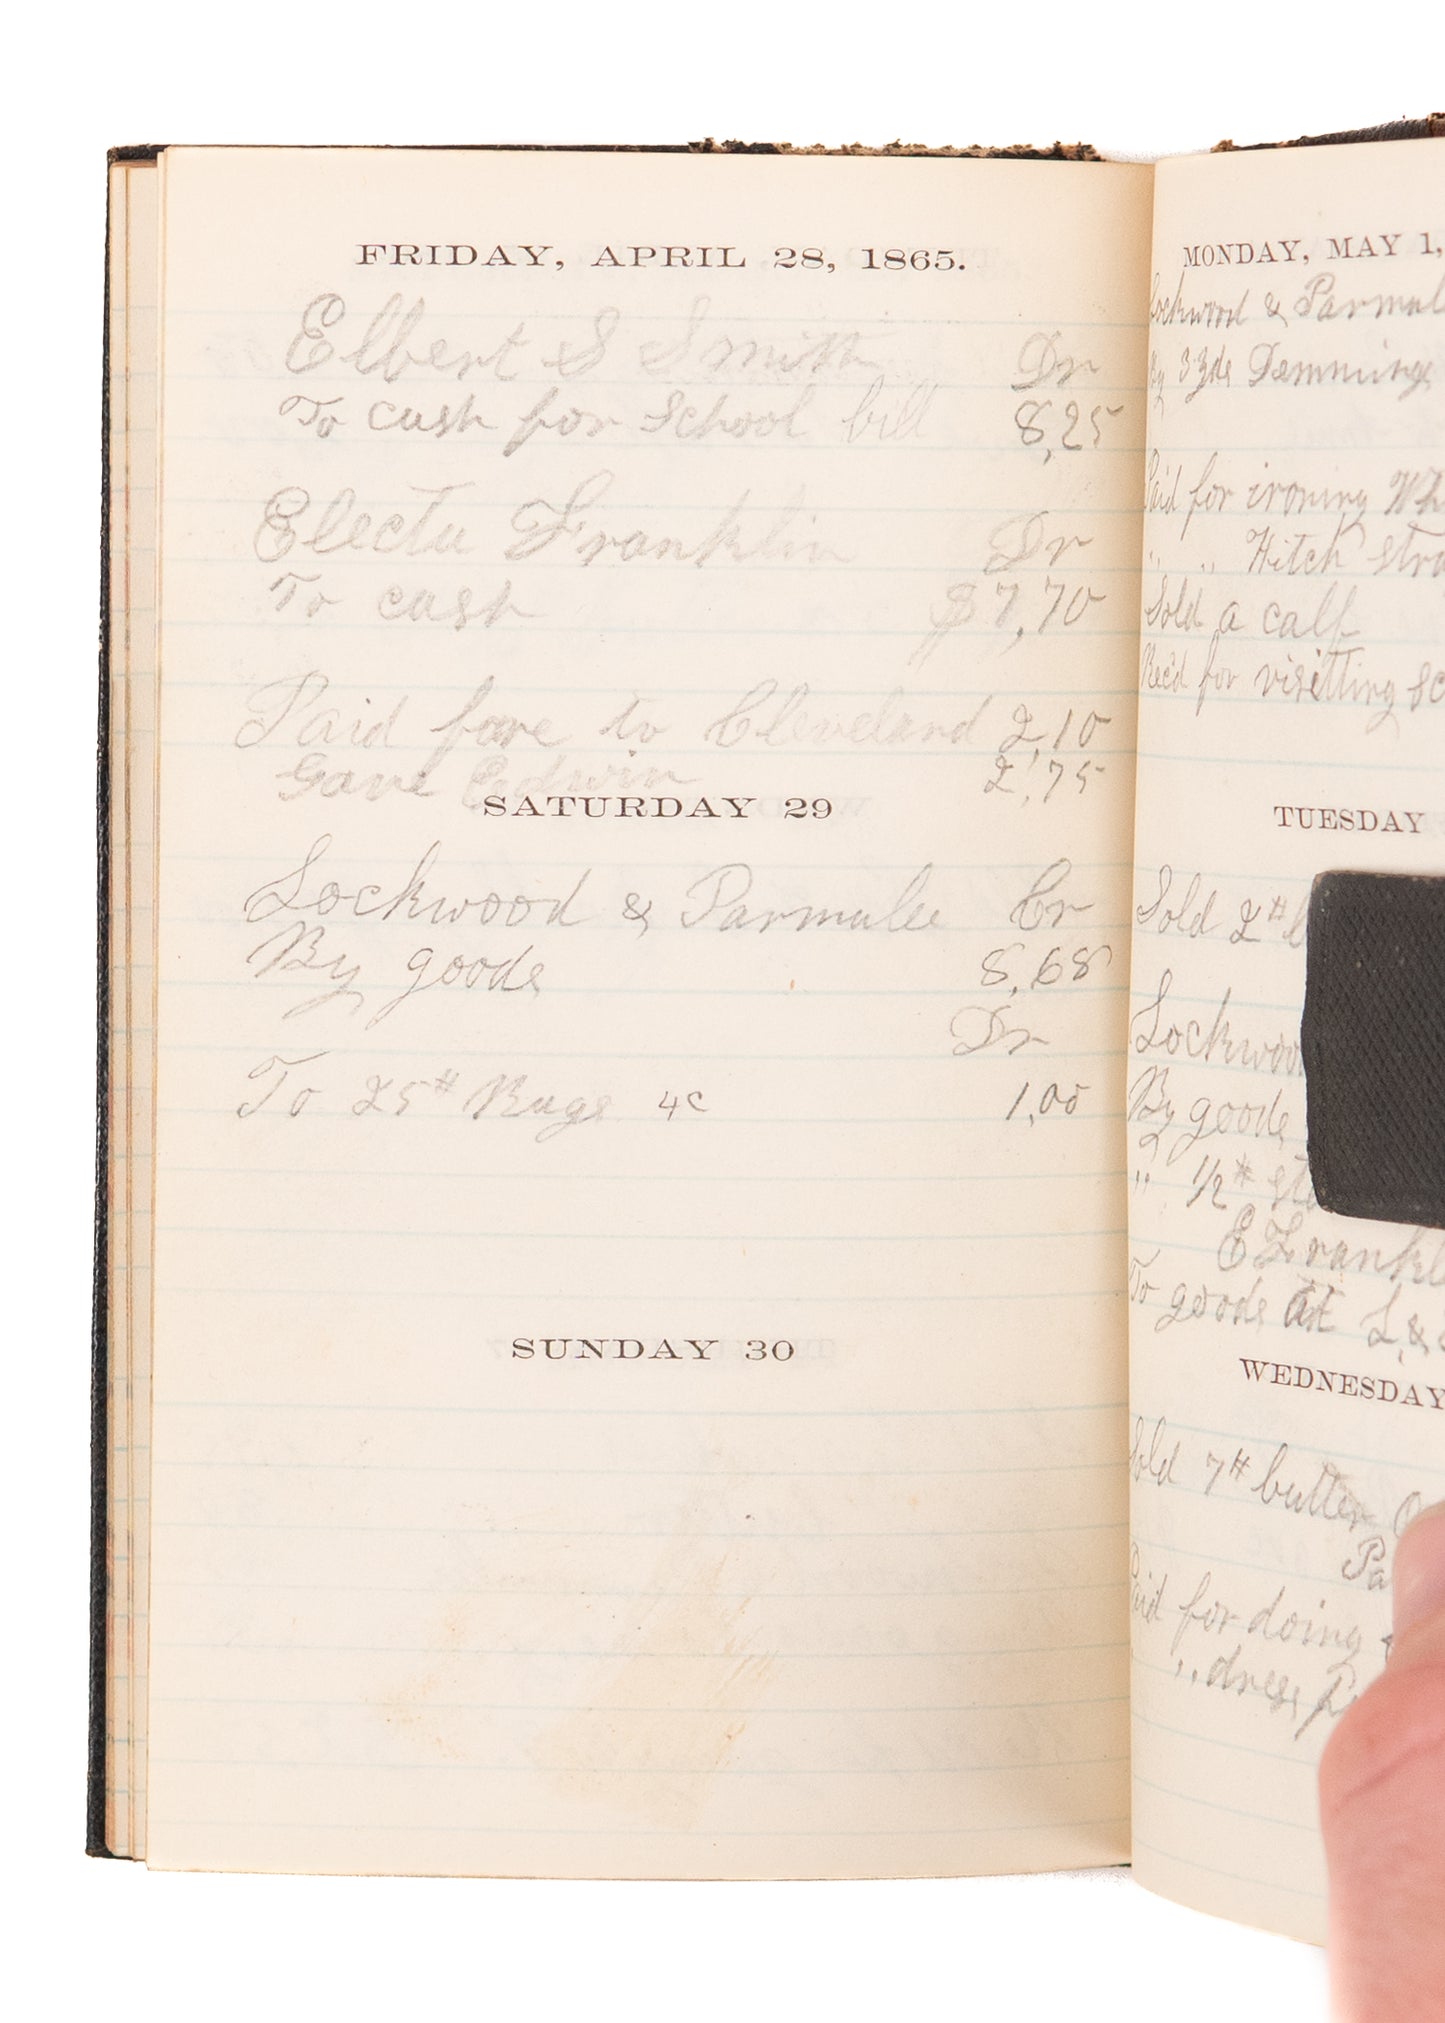 FRIDAY, APRIL 28, 1865.
Elbert S Smith Dr
To cash for School bill 8,25
Electa Franklin Dr
To cash $7,70
Paid fare to Cleveland 2,10
Gave Edwin 2,75
SATURDAY 29
Lockwood & Parmalee Cr
By goods 8,68
Dr
To 25# Rags 4c 1,00
SUNDAY 30
MONDAY, MAY 1,
Lockwood & Parmal
By 3 yds Demmings
Paid for ironing Wh
" " Hitch stra
Sold a calf
Rec'd for visitting sc
TUESDAY
Sold 2# b
Lockwoo
By goods
" 1/2# sta
E Frankl
To goods at L, &
WEDNESDAY
Sold 7# butter
Pa
Paid for doing
" dress